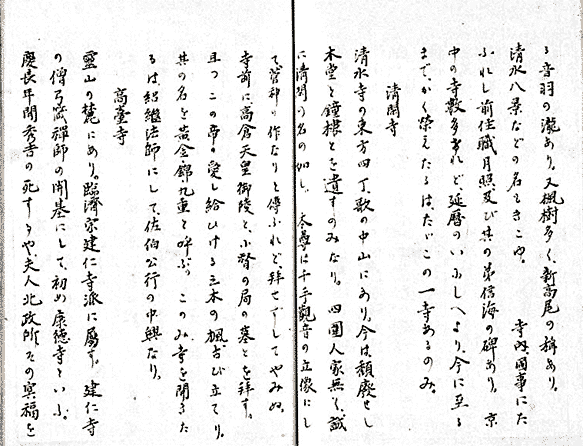 る音羽の瀧あり。又楓樹多く、新高尾の稱あり。
清水八景などの名もきこゆ。寺内國事にた
ふれし前住職月照及び其の弟信海の碑あり。京
中の寺數多なれど、延暦のいにしへより、今に至る
まで、かく榮えたるは、たゞこの一寺あるのみ。
清閑寺
清水寺の東方四丁、歌の中山にあり。今は頽廢せし
本堂と鐘樓とを遺すのみなり。四圍人家無く、誠
に清閑の名の如し。本尊は千手觀音の立像にし
て、菅神の作なりと傳ふれど拜せずしてやみぬ。
寺前に高倉天皇御陵と、小督の局の墓とを拜す。
且つこの帝の愛し給ひける三本の楓ならび立てり。
其の名を黄金錦九重と呼ぶ。このみ寺を開きた
るは紹繼法師にして、佐伯公行の中興なり。
高臺寺
靈山の麓にあり。臨濟宗建仁寺派に屬す。建仁寺
の僧弓箴禪師の開基にして、初め康徳寺といふ。
慶長年間秀吉の死するや夫人北政所其の冥福を